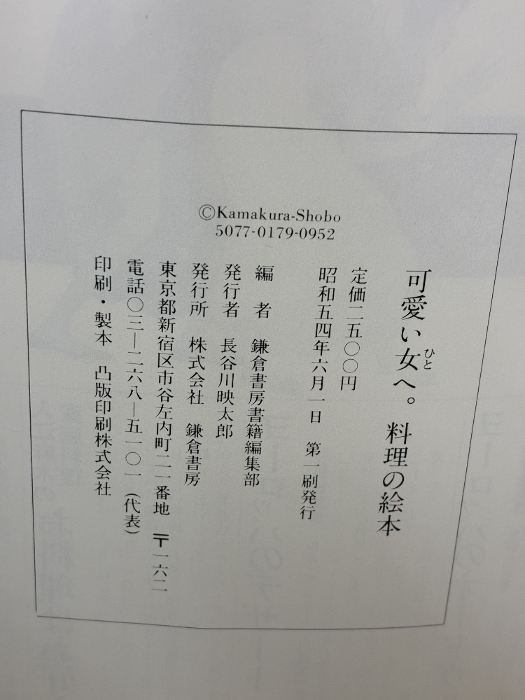 ©Kamakura-Shobo
5077-0179-0952
可愛い女へ。料理の絵本
ひと
定価二五〇〇円
昭和五四年六月一日 第一刷発行
編者 鎌倉書房書籍編集部
発行者 長谷川映太郎
発行所 株式会社 鎌倉書房
東京都新宿区市谷左内町二一番地 〒一六二
電話〇三―二六八―五一〇一(代表)
印刷・製本 凸版印刷株式会社